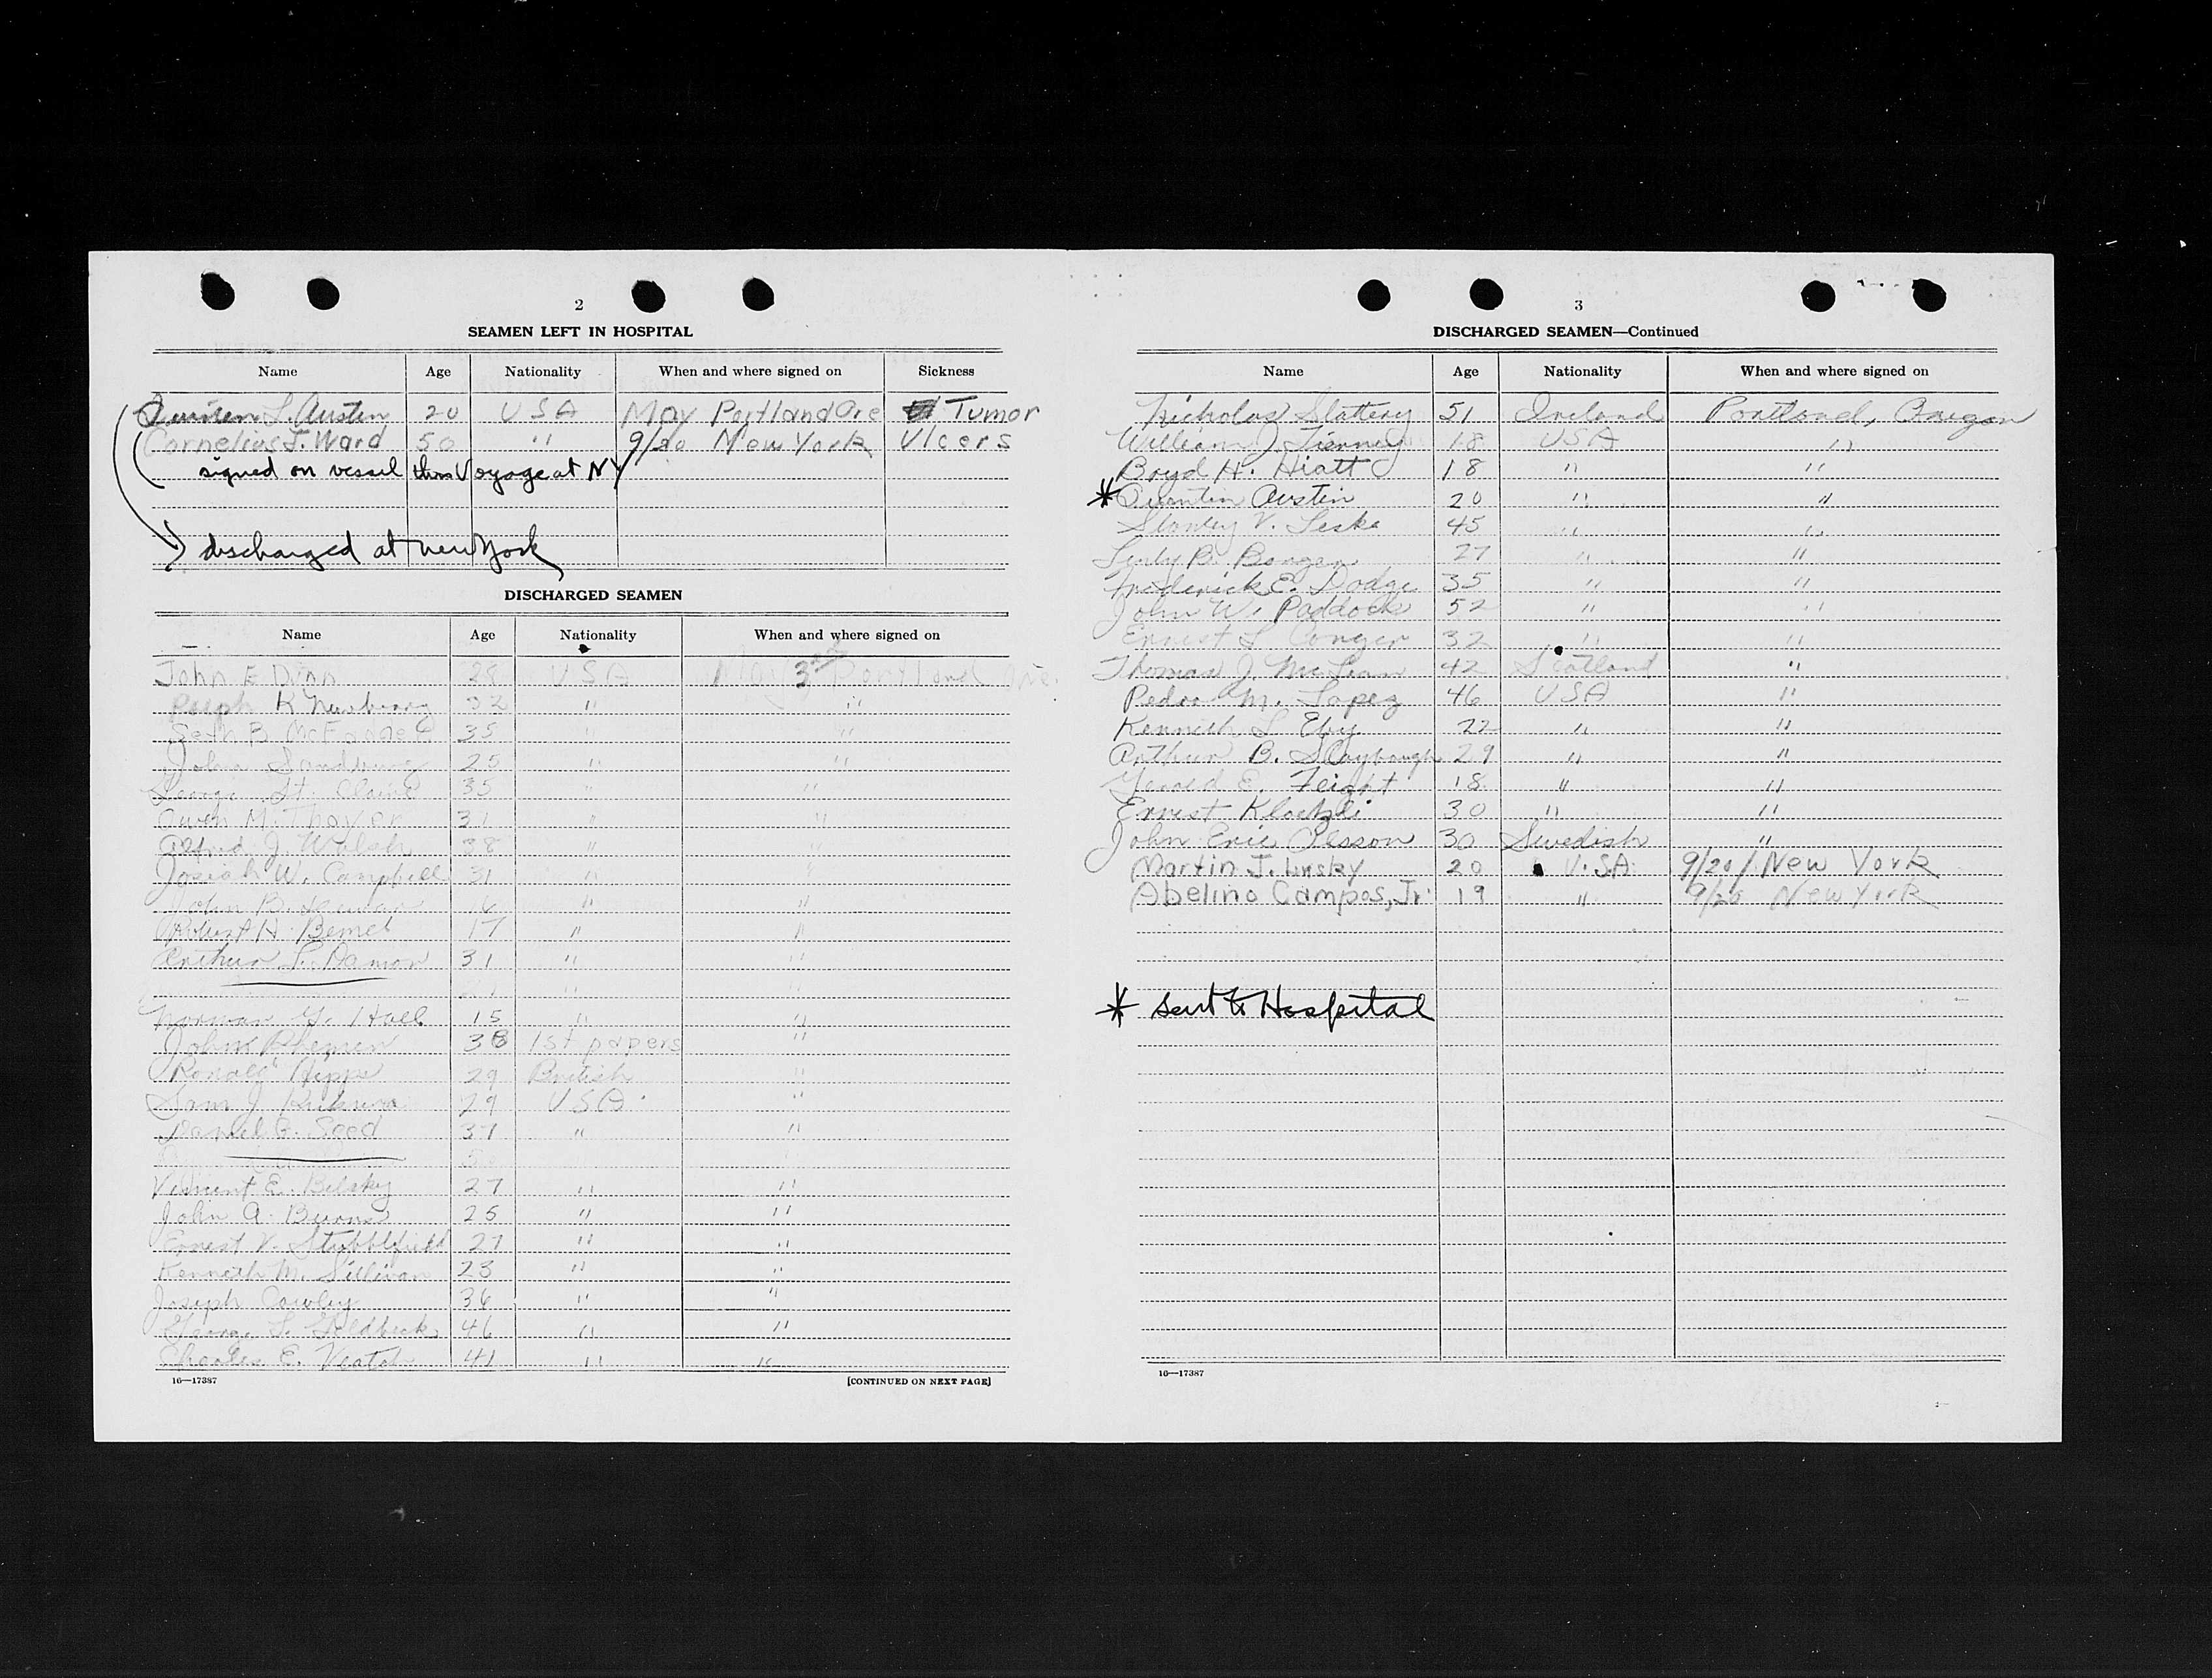 2
SEAMEN LEFT IN HOSPITAL
Name Age Nationality When and where signed on Sickness
Quinten L. Austen 20 USA May Portland Ore Tumor
Cornelius J. Ward 50 " 9/20 New York Ulcers
signed on vessel this Voyage at NY
discharged at New York
DISCHARGED SEAMEN
Name Age Nationality When and where signed on
John E Dunn 28 USA May 3rd Portland Ore.
K Newberry 32 " "
Seth B McFadden 35 " "
John Sandburg 25 " "
George St. Claire 35 " "
Owen M. Thayer 31 " "
Alfred J. Walsh 38 " "
Josiah W. Campbell 31 " "
John B. 16 " "
Robert H. Bemel 17 " "
Arthur L. Damon 31 " "
" "
Norman G. Hall 15 " "
John 38 1st papers "
Ronald Hipps 29 British "
Sam J. 29 USA "
Daniel G. Seed 37 " "
Vincent E. Bilsky 27 " "
John A. Burns 25 " "
Ernest V. Stubblefield 27 " "
Kenneth M. Sullivan 23 " "
Joseph Cowley 36 " "
George L. Goldbeck 46 " "
Charles E. Veatch 41 " "
16—17387 [CONTINUED ON NEXT PAGE]
3
DISCHARGED SEAMEN—Continued
Name Age Nationality When and where signed on
Nicholas Slattery 51 Ireland Portland, Oregon
William J. Tierney 18 USA "
Boyd H. Hiatt 18 " "
* Quentin Austin 20 " "
Stanley V. Leske 45 " "
B. Bangen 27 " "
Frederick E. Dodge 35 " "
John W. Paddock 52 " "
Ernest L Conger 32 " "
Thomas J. McLean 42 Scotland "
Pedro M. Lopez 46 USA "
Kenneth L Eby 22 " "
Arthur B. Slaybaugh 29 " "
Gerald E. Feight 18 " "
Ernest Kloetzli 30 " "
John Eric Olsson 30 Swedish "
Martin J. Linsky 20 U.S.A. 9/20/ New York
Abelino Campos, Jr. 19 " 9/20 New York
* sent to Hospital
16—17387